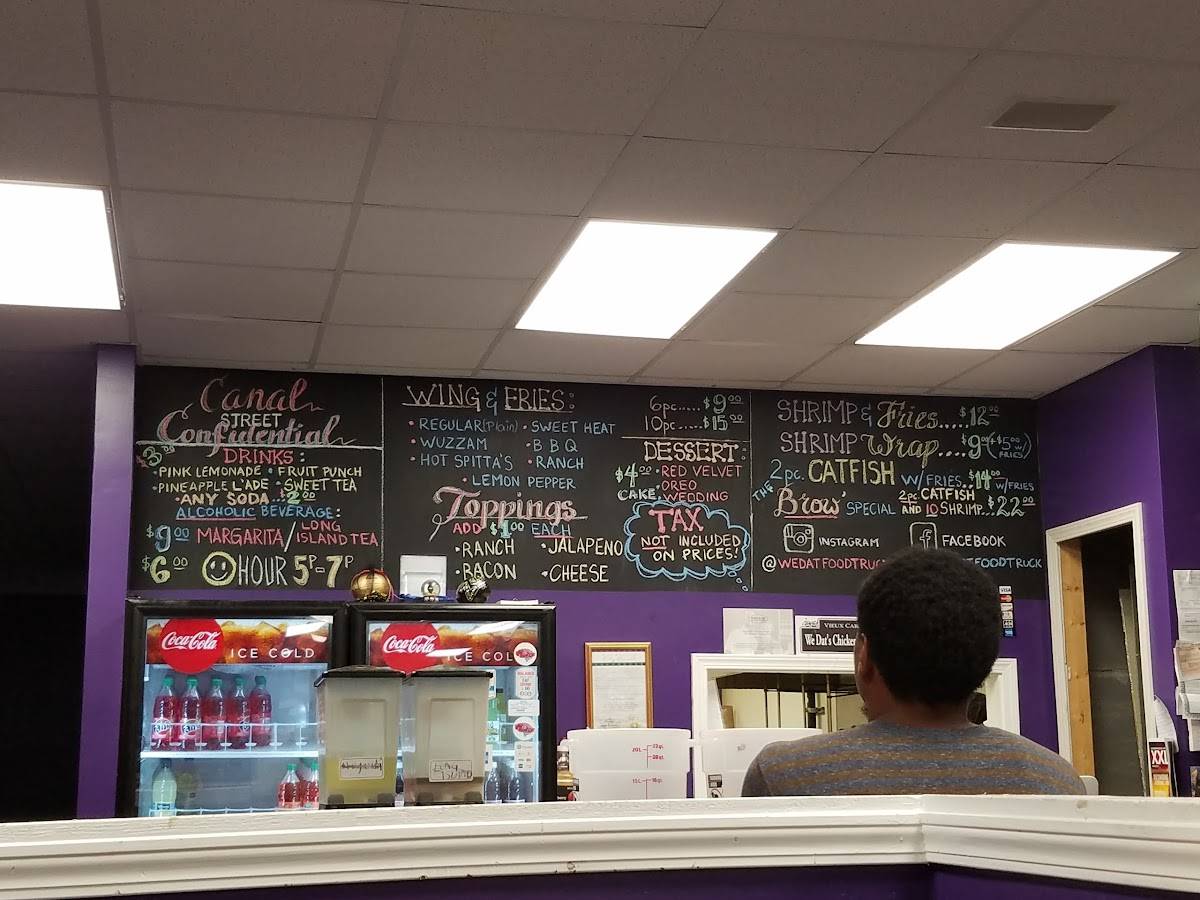 Canal
STREET
Confidential
DRINKS:
$3.00
• PINK LEMONADE • FRUIT PUNCH
• PINEAPPLE L'ADE • SWEET TEA
• ANY SODA...$2.00
ALCOHOLIC BEVERAGE:
$9.00 MARGARITA/LONG ISLAND TEA
$6.00 HOUR 5P-7P
WING & FRIES:
• REGULAR(Plain) • SWEET HEAT
• WUZZAM • BBQ
• HOT SPITTA'S • RANCH
• LEMON PEPPER
6pc.....$9.00
10pc.....$15.00
Toppings
ADD $1.00 EACH
• RANCH • JALAPENO
• BACON • CHEESE
DESSERT:
$4.00 CAKE
• RED VELVET
• OREO
• WEDDING
TAX
NOT INCLUDED
ON PRICES!
SHRIMP & Fries.....$12.00
SHRIMP Wrap....$9.00 (+$5.00 w/ FRIES)
2pc. CATFISH W/FRIES...$14.00 w/FRIES
THE Brow' SPECIAL 2pc CATFISH AND 10 SHRIMP...$22.00
INSTAGRAM
FACEBOOK
@WEDATFOODTRUC
TFOODTRUCK
Coca-Cola
ICE COLD
Coca-Cola
ICE COL
LONG ISLAND
VIEUX CAR
We Dat's Chicken
VISA
XXL